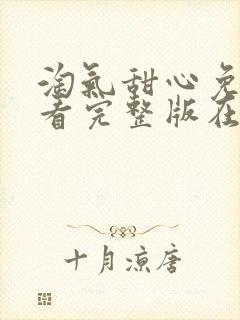 淘氣甜心免
看完整版在
十月涼唐